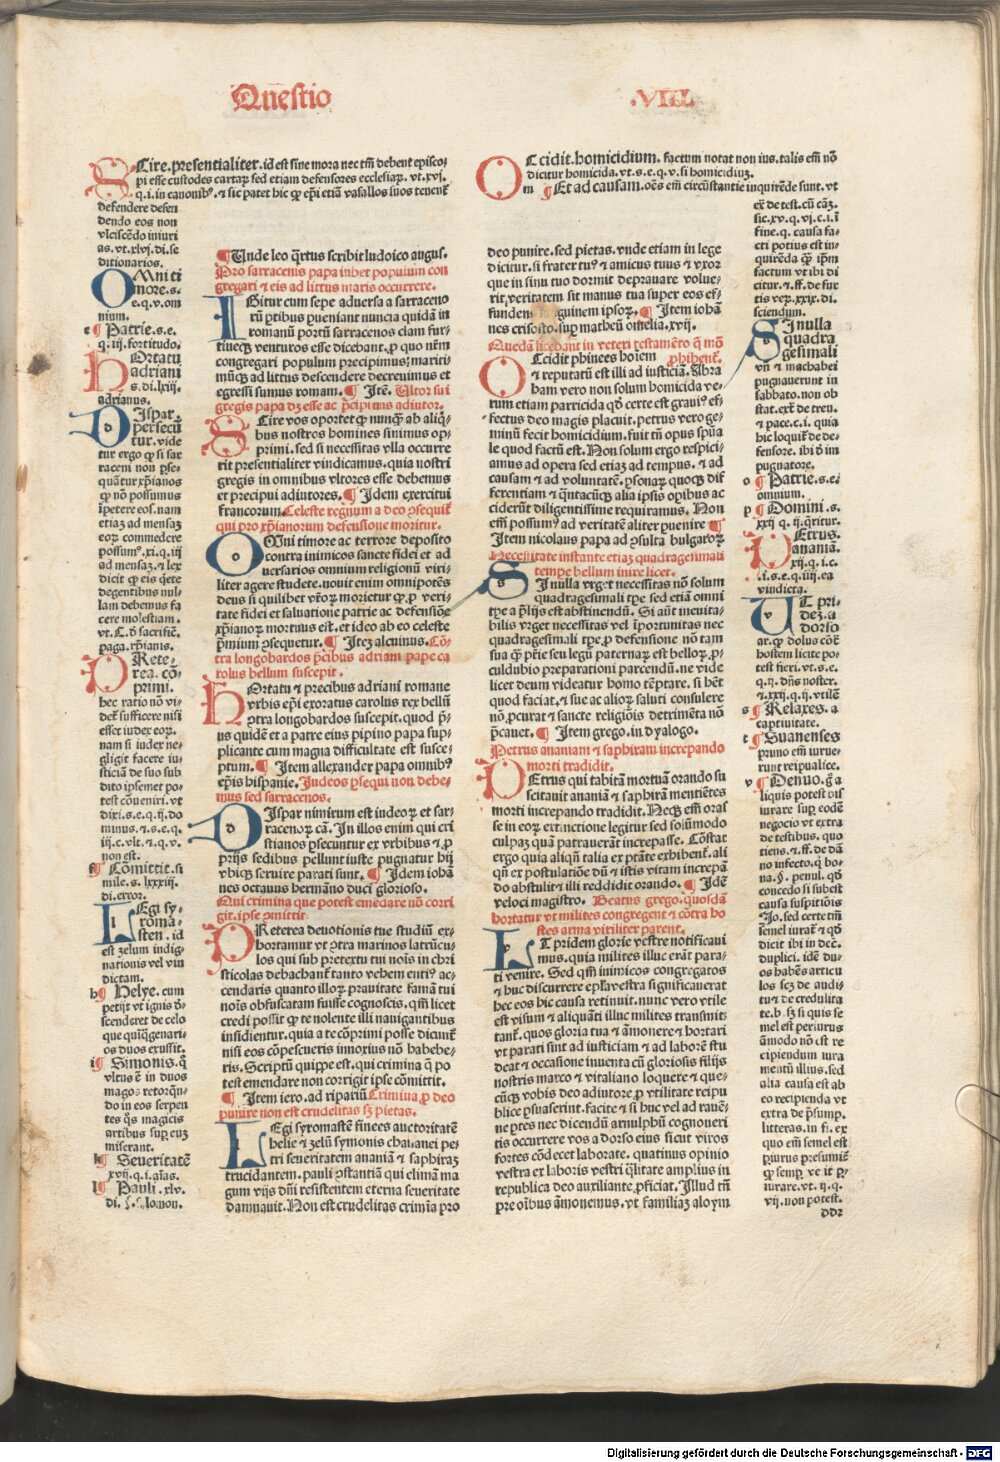 Questio
.VIII.
SCire.presentialiter.id est sine mora nec tm̄ debent episco-
pi esse custodes cartaꝝ sed etiam defensores ecclesiaꝝ.vt.xvj.
q.i.in canonibꝰ.⁊ sic patet hic ꝙ ep̄i etiā vasallos suos tenent̄
defendere defen
dendo eos non
vlciscēdo iniuri
as.vt.xlvj.di.se
ditionarios.
OMni ti
more.s.
e.q.v.om
nium.
¶ Patrie.s.e.
q.iij.fortitudo.
HOrtatu
adriani
s.di.lxiij.
adrianus.
DIspar.
persecū
tur.vide
tur ergo ꝙ si sar
raceni non ꝑse-
quātur xp̄ianos
ꝙ nō possumus
īpetere eos.nam
etiaꝫ ad mensaꝫ
eoꝝ commedere
possumꝰ.xi.q.iij
ad mensaꝫ.⁊ lex
dicit ꝙ eis q̄ete
degentibus nul-
lam debemus fa
cere molestiam.
vt.C.ð sacrifič.
paga.xp̄ianis.
PRete-
rea.cō-
primi.
hec ratio nō vi-
det̄ sufficere nisi
esset iudex eoꝝ.
nam si iudex ne-
gligit facere iu-
sticiā de suo sub
dito ipsemet po-
test cōueniri.vt
dixi.s.e.q.ij.do
minus.⁊.s.e.q.
iij.c.vlt.⁊.q.v.
non est.
¶ Cōmittit.si
mile.s.lxxxiij.
di.error.
LEgi sy-
roma-
sten.id
est zelum indig-
nationis vel vin
dictam.
h¶ Helye.cum
petijt vt ignis d̄-
scenderet de celo
que quīq̄genari-
os duos exussit.
i¶ Simonis.q̄
vltus ē in duos
magos retorqn̄-
do in eos serpen
tes q̄s magicis
artibus suꝑ euꝫ
miserant.
k¶ Seueritatē
xvij.q.i.anīas.
l¶ Pauli.xlv.
di.§.salomon.
¶Unde leo q̄rtus scribit ludoico augus.
Pro sarracenis papa iubet populum con
gregari ⁊ eis ad littus maris occurrere.
IGitur cum sepe aduersa a sarraceno
rū ꝑtibus ꝑueniant nuncia quidā in
romanū portū sarracenos clam fur-
tiueqꝫ venturos esse dicebant.ꝓ quo nēm
congregari populum precipimus; mariti-
mūqꝫ ad littus descendere decreuimus et
egressi sumus romam.¶ Itē. Ultor sui
gregis papa dꝫ esse ac p̄cipimus adiutor.
SCire vos oportet ꝙ nunqꝫ ab aliq̄-
bus nostros homines sinimus op-
primi.sed si necessitas vlla occurre
rit presentialiter vindicamus.quia nostri
gregis in omnibus vltores esse debemus
et precipui adiutores.¶ Idem exercitui
francorum.Celeste regnum a deo ꝯsequit̄
qui pro xp̄ianorum defensione moritur.
OMni timore ac terrore deposito
contra inimicos sancte fidei et ad
uersarios omnium religionū viri-
liter agere studete.nouit enim omnipotēs
deus si quilibet vr̄oꝝ morietur ꝙ.ꝓ veri-
tate fidei et saluatione patrie ac defensiōe
xp̄ianoꝝ mortuus est.et ideo ab eo celeste
p̄mium ꝯsequetur.¶ Iteꝫ alcuinus.Cō-
tra longobardos p̄cibus adriani pape ca
rolus bellum suscepit.
HOrtatu ⁊ precibus adriani romane
vrbis ep̄i exoratus carolus rex bellū
ꝯtra longobardos suscepit.quod p̄-
us quidē et a patre eius pipino papa sup-
plicante cum magna difficultate est susce-
ptum.¶ Item allexander papa omnibꝰ
ep̄is hispanie.Iudeos ꝑsequi non debe-
mus sed sarracenos.
DIspar nimirum est iudeoꝝ et sar-
racenoꝝ cā.In illos enim qui cri
stianos ꝑsecuntur ex vrbibus ⁊.ꝓ
prijs sedibus pellunt iuste pugnatur hij
vbiqꝫ seruire parati sunt.¶ Idem iohā
nes octauus hermāno duci glorioso.
Qui crimina que potest emēdare nō corri
git.ipse ꝯmittit.
PReterea deuotionis tue studiū ex-
hortamur vt ꝯtra marinos latrūcu-
los qui sub pretextu tui nois in chri
sticolas debachant̄ tanto vehementiꝰ ac-
cendaris quanto illoꝝ prauitate famā tui
nois obfuscatam fuisse cognoscis.qm̄ licet
credi possit ꝙ te nolente illi nauigantibus
insidientur.quia a te cōprimi posse dicunt̄
nisi eos cōpescueris innoxius nō habebe-
ris.Scriptū quippe est.qui crimina q̄ po
test emendare non corrigit ipse cōmittit.
¶ Item iero.ad ripariū Crimina ꝓ deo
punire non est crudelitas sꝫ pietas.
LEgi syromastē finees austeritatē
helie ⁊ zelū symonis chananei pe-
tri seueritatem ananiā ⁊ saphiraꝫ
trucidantem.pauli ꝯstantiā qui elimā ma
gum vijs dn̄i resistentem eterna seueritate
damnauit.Non est crudelitas crimīa pro
OCcidit.homicidium.factum notat non ius.talis em̄ nō
dicitur homicida.vt.s.e.q.v.si homicidiuꝫ.
m ¶ Et ad causam.oēs em̄ circūstantie inquirēde sunt.vt
deo punire.sed pietas.vnde etiam in lege
dicitur.si frater tuꝰ ⁊ amicus tuus ⁊ vxor
que in sinu tuo dormit deprauare volue-
rit.veritatem sit manus tua super eos ef-
funden guinem ipsoꝝ.¶ Item iohā
nes crisosto.sup matheū omelia.xvij.
Quedā licebant in veteri testamēto q̄ mō
OCcidit phinees hoīem ꝓhibent̄.
⁊ reputatū est illi ad iusticiā.Abra
ham vero non solum homicida ve-
rum etiam parricida qđ certe est grauiꝰ ef-
fectus deo magis placuit.petrus vero ge-
minū fecit homicidium.fuit tn̄ opus spūa
le quod factū est.Non solum ergo respici-
amus ad opera sed etiaꝫ ad tempus.⁊ ad
causam ⁊ ad voluntatē.ꝑsonaꝝ quoqꝫ dif
ferentiam ⁊ q̄ntacūqꝫ alia ipsis oꝑibus ac
ciderūt diligentissime requiramus.Non
em̄ possumꝰ ad veritatē aliter ꝑuenire ¶
Item nicolaus papa ad ꝯsulta bulgaroꝝ
Necessitate instante etiaꝫ quadragesimali
tempe bellum inire licet.
SI nulla vrget necessitas nō solum
quadragesimali tpe sed etiā omni
tpe a p̄lijs est abstinendū.Si aūt ineuita-
bilis vrget necessitas vel īportunitas nec
quadragesimali tpe.ꝓ defensione nō tam
sua qꝫ pr̄ie seu legū paternaꝝ est belloꝝ.ꝓ-
culdubio preparationi parcendū.ne vide
licet deum videatur homo tēptare.si hēt
quod faciat.⁊ sue ac alioꝝ saluti consulere
nō.ꝓcurat ⁊ sancte religiōis detrimēta nō
p̄cauet.¶ Item grego.in dyalogo.
Petrus ananiam ⁊ saphiram increpando
morti tradidit.
PEtrus qui tabitā mortuā orando su
scitauit ananiā ⁊ saphirā mentiētes
morti increpando tradidit.Neqꝫ em̄ oras
se in eoꝝ extinctione legitur sed solūmodo
culpaꝫ quā patrauerāt increpasse.Cōstat
ergo quia aliqn̄ talia ex ptāte exhibent̄.ali
qn̄ ex postulatiōe dū ⁊ istis vitam increpā
do abstulit ⁊ illi reddidit orando.¶ Idē
veloci magistro. Beatus grego.quosdā
hortatur vt milites congregent ⁊ cōtra ho
stes arma viriliter parent.
UT pridem glorie vestre notificaui
mus.quia milites illuc erāt para-
ti venire.Sed qm̄ inimicos congregatos
⁊ huc discurrere epl̄a vestra significauerat
hec eos hic causa retinuit.nunc vero vtile
est visum ⁊ aliquāti illuc milites transmit-
tant̄.quos gloria tua ⁊ āmonere ⁊ hortari
vt parati sint ad iusticiam ⁊ ad laborē stu
deat ⁊ occasione inuenta cū gloriosis filijs
nostris marco ⁊ vitaliano loquere ⁊ que-
cūqꝫ vobis deo adiutore.ꝓ vtilitate reipu
blice ꝑsuaserint.facite ⁊ si huc vel ad rauē-
ne ꝑtes nec dicendū arnulphū cognoueri
tis occurrere vos a dorso eius sicut viros
fortes cōdecet laborate.quatinus opinio
vestra ex laboris vestri q̄litate amplius in
republica deo auxiliante.ꝓficiat.Illud tn̄
pre oībus āmonemus.vt familiaꝫ aloym
ex̄ de test.cū cāꝫ.
sic.xv.q.vi.c.i.ī
fine.q.causa fa-
cti potius est in-
quirēda qꝫ ip̄m
factum vt ibi di
citur.⁊.ff.de fur
tis verꝫ.xxix.di.
sciendum.
SI nulla
quadra
gesimali
vn̄ ⁊ machabei
pugnauerunt in
sabbato.non ob
stat.ext̄ de treu.
⁊ pace.c.i.quia
hic loquit̄ de de-
fensore.ibi ð im
pugnatore.
o ¶ Patrie.s.e.
omnium.
p ¶ Domini.s.
xxij q.ij.q̄ritur.
PEtrus.
ananiā.
xij.q.i.c.
i.s.e.q.iiij.ea
vindicta.
UT pri-
deꝫ.a
dorso
ar.ꝙ dolus cōt̄
hostem licite po-
test fieri.vt.s.e.
q.ij.dn̄s noster.
⁊.xxij.q.ij.vtilē
s ¶ Relaxes.a
captiuitate.
t ¶ Suanenses
primo em̄ iurue-
runt reipublice.
v ¶ Denuo.q̄ a
liquis potest vis
iurare suꝑ eodē
negocio vt extra
de testibus.quo
tiens.⁊.ff.de dā
no infecto.q̄ bo-
na.§.penul.qđ
concedo si subest
causa suspitiōis
Jo.sed certe tm̄
semel iurat̄ ⁊ qđ
dicit ibi in decꝫ.
duplici.idē du-
os habēs articu
los scꝫ de audi-
tu ⁊ de credulita
te.b.sꝫ si quis se
mel est periurus
āmodo nō est re
cipiendum iura
mentū illius.sed
alia causa est ab
eo recipienda vt
extra de p̄sump.
litteras.in fi.ex
quo em̄ semel est
ꝑiurus presumit̄
ꝙ semꝑ ve it ꝑ-
iurare.vt.ij.q.
vij.non potest.
DD2
Digitalisierung gefördert durch die Deutsche Forschungsgemeinschaft - DFG